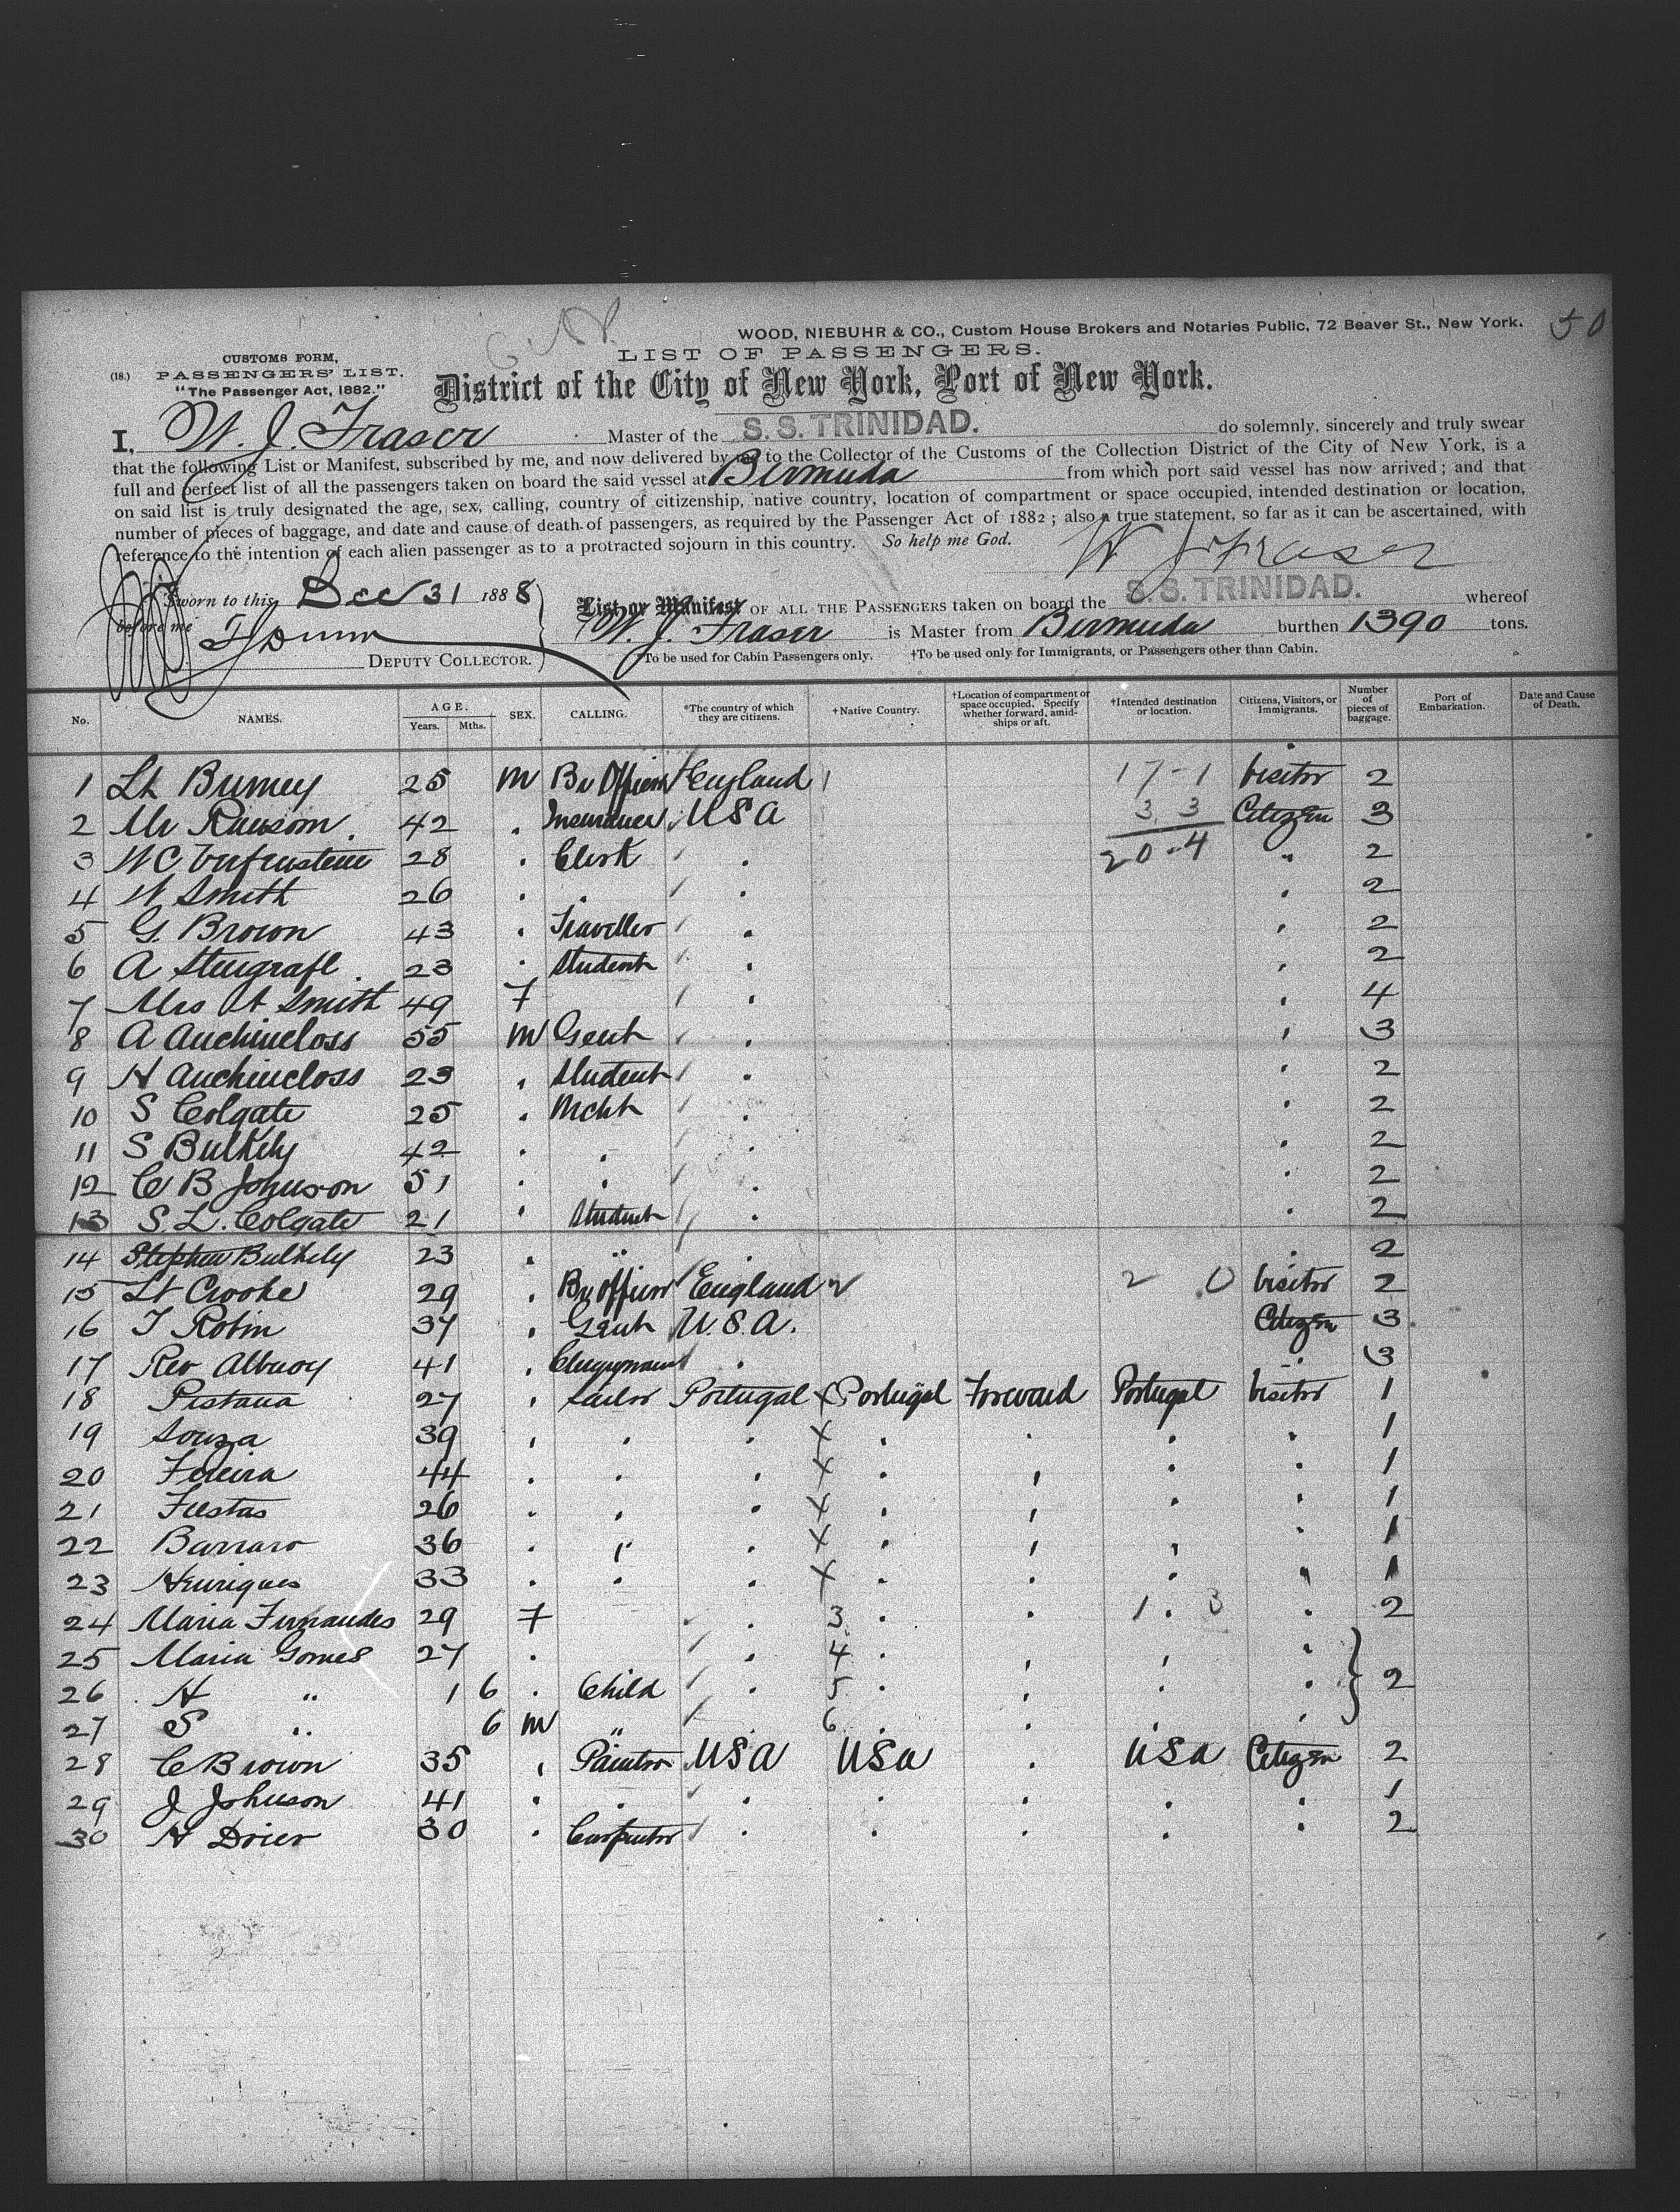 50
WOOD, NIEBUHR & CO., Custom House Brokers and Notaries Public, 72 Beaver St., New York.
LIST OF PASSENGERS.
(18.) CUSTOMS FORM,
PASSENGERS' LIST.
"The Passenger Act, 1882."
District of the City of New York, Port of New York.
I, W. J. Fraser Master of the S. S. TRINIDAD. do solemnly, sincerely and truly swear
that the following List or Manifest, subscribed by me, and now delivered by me to the Collector of the Customs of the Collection District of the City of New York, is a
full and perfect list of all the passengers taken on board the said vessel at Bermuda from which port said vessel has now arrived; and that
on said list is truly designated the age, sex, calling, country of citizenship, native country, location of compartment or space occupied, intended destination or location,
number of pieces of baggage, and date and cause of death of passengers, as required by the Passenger Act of 1882; also a true statement, so far as it can be ascertained, with
reference to the intention of each alien passenger as to a protracted sojourn in this country. So help me God.
W J Fraser
Sworn to this Dec 31 1888
before me
DEPUTY COLLECTOR.
List or Manifest OF ALL THE PASSENGERS taken on board the S. S. TRINIDAD. whereof
W. J. Fraser is Master from Bermuda burthen 1390 tons.
*To be used for Cabin Passengers only. †To be used only for Immigrants, or Passengers other than Cabin.
No. NAMES. AGE. Years. Mths. SEX. CALLING. *The country of which they are citizens. †Native Country. †Location of compartment or space occupied. Specify whether forward, amidships or aft. †Intended destination or location. Citizens, Visitors, or Immigrants. Number of pieces of baggage. Port of Embarkation. Date and Cause of Death.
1 Lt Burney 25 M Br Officer England 1 17-1 Visitor 2
2 Mr Ransom. 42 . Insurance USA 3 3 Citizen 3
3 W C 28 . Clerk . 20-4 " 2
4 W Smith 26 . . . . 2
5 G. Brown 43 . Traveller . . 2
6 A 23 . Student . . 2
7 Mrs A Smith 49 F . . 4
8 A Auchincloss 55 M Gent . . 3
9 H Auchincloss 23 . Student . . 2
10 S Colgate 25 . Mcht . . 2
11 S Bulkely 42 . . . . 2
12 C B Johnson 51 . . . . 2
13 S. L. Colgate 21 . Student . . 2
14 Stephen Bulkely 23 . " . . 2
15 Lt Crooke 29 . Br Officer England 2 0 Visitor 2
16 T Robin 37 . Gent U.S.A. Citizen 3
17 Rev Albuoy 41 . Clergyman . " 3
18 Pistana 27 . Sailor Portugal x Portugal Forward Portugal Visitor 1
19 Souza 39 . . . x . . . . 1
20 Fereira 44 . . . x . . . . 1
21 Fustas 26 . . . x . . . . 1
22 Barraro 36 . . . x . . . . 1
23 Henriques 33 . . . x . . . . 1
24 Maria Fernandes 29 F . 3 . . 1 . 3 . 2
25 Maria Gomes 27 . . 4 . . . .
26 H " 1 6 . Child . 5 . . . . 2
27 S " 6 M " . 6 . . . .
28 C Brown 35 . Painter USA USA . USA Citizen 2
29 J Johnson 41 . . . . . . . 1
30 H Drier 30 . Carpenter . . . . . 2